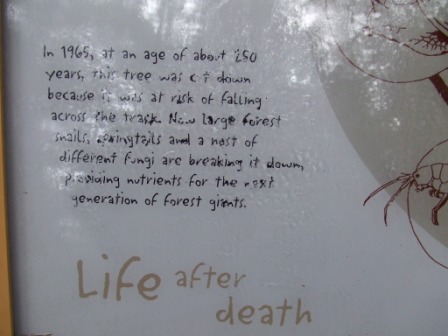 In 1965, at an age of about 250
years, this tree was cut down
because it was at risk of falling
across the track. Now large forest
snails, springtails and a host of
different fungi are breaking it down,
providing nutrients for the next
generation of forest giants.
Life after
death